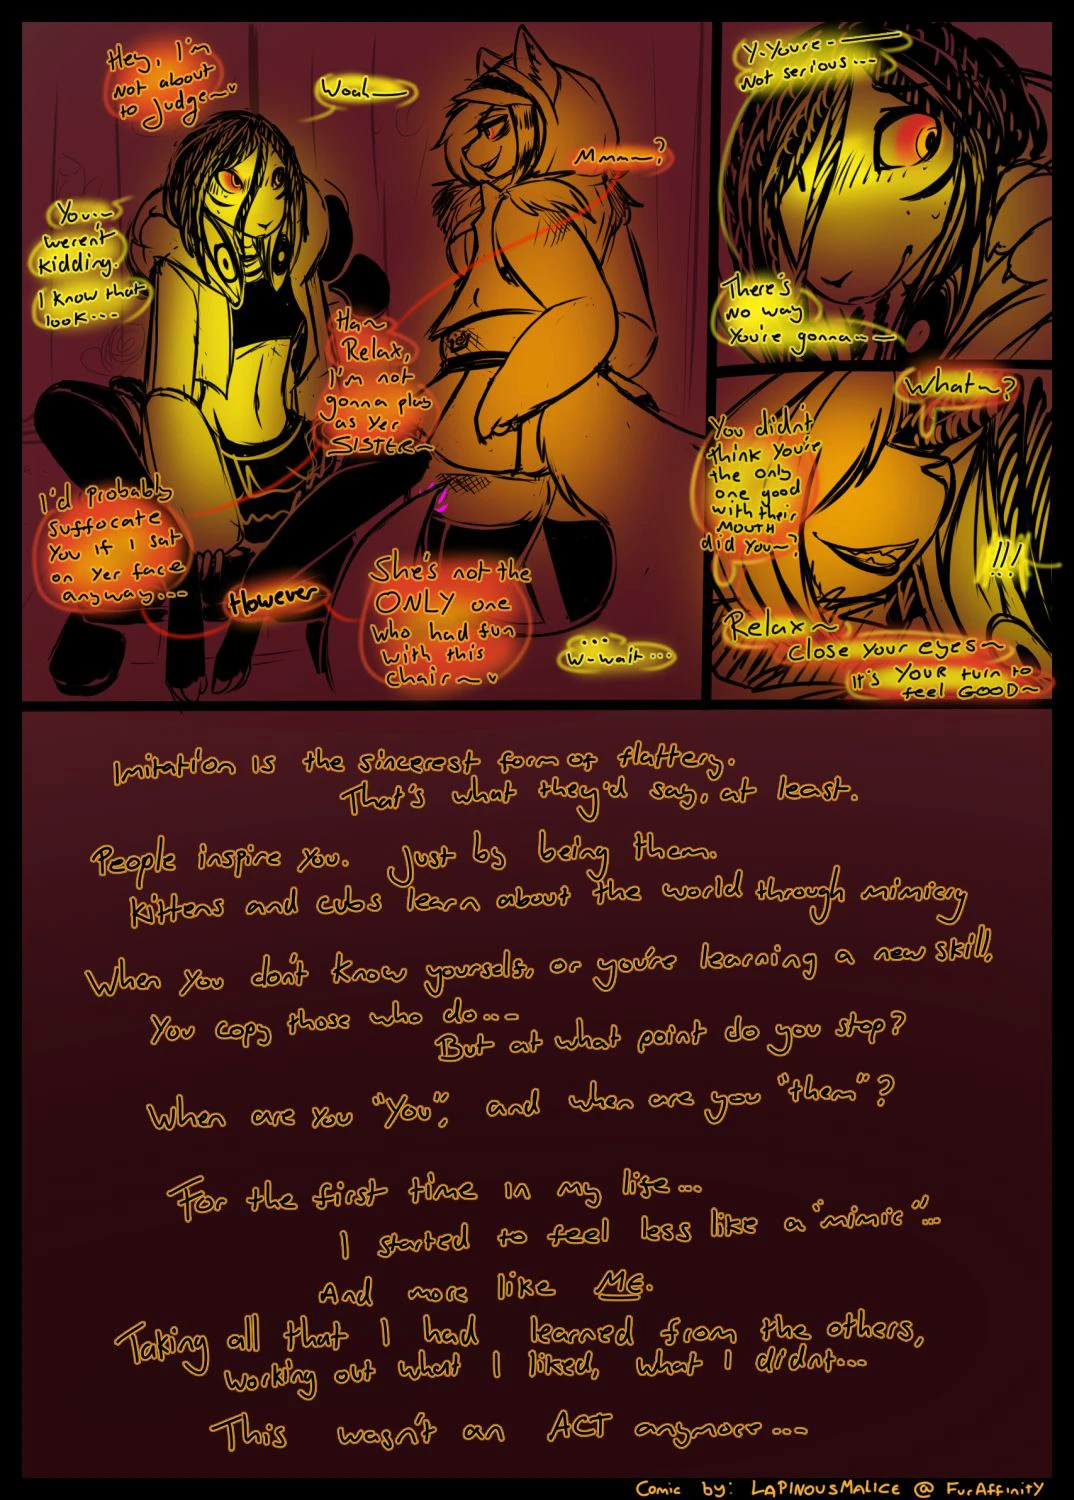 Hey, I'm
not about
to judge~♥
Woah—
You...
weren't
kidding.
I know that
look...
Mmmm~?
Ha~
Relax,
I'm not
gonna play
as yer
SISTER~
I'd probably
suffocate
you if I sat
on yer face
anyway...
However
She's not the
ONLY one
who had fun
with this
chair~♥
...
W-wait...
Y-You're-
Not serious...
There's
no way
you're gonna--
What~?
You didn't
think you're
the only
one good
with their
MOUTH
did you~?
!!!
Relax~
close your eyes~
It's YOUR turn to
feel GOOD~
Imitation is the sincerest form of flattery.
That's what they'd say, at least.
People inspire you. Just by being them.
Kittens and cubs learn about the world through mimicry
When you don't know yourself, or you're learning a new skill,
You copy those who do...
But at what point do you stop?
When are you "You", and when are you "them"?
For the first time in my life...
I started to feel less like a "mimic"...
And more like ME.
Taking all that I had learned from the others,
working out what I liked, what I didnt...
This wasn't an ACT anymore...
Comic by: LAPINOUSMALICE @ FurAffinity